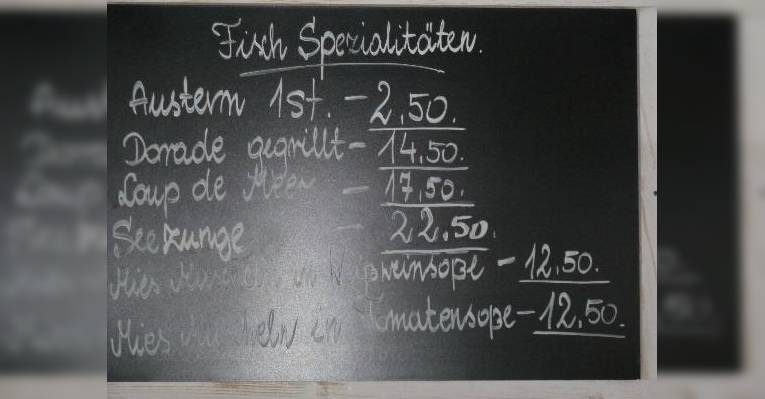 Fisch Spezialitäten.
Austern 1St. - 2,50.
Dorade gegrillt - 14,50.
Loup de Meer - 17,50.
Seezunge - 22,50.
Mies Muscheln in Weißweinsoße - 12,50.
Mies Muscheln in Tomatensoße - 12,50.